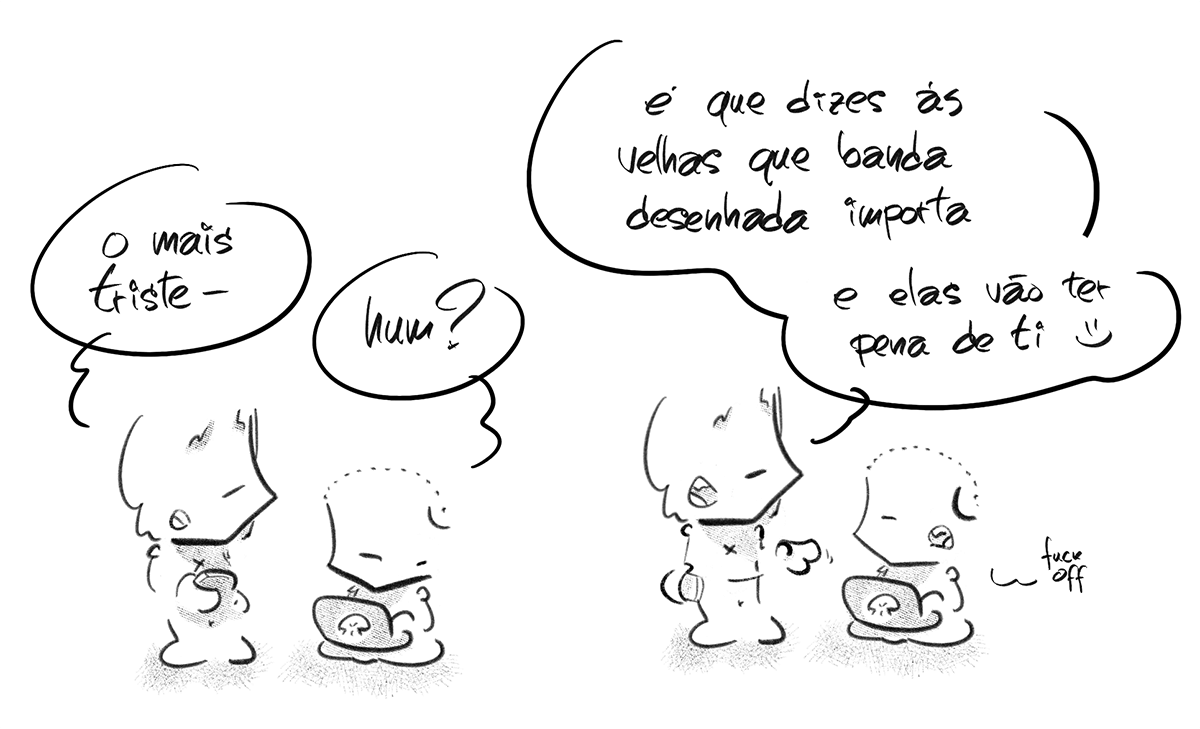 o mais
triste –
hum?
é que dizes às
velhas que banda
desenhada importa
e elas vão ter
pena de ti :)
fuck
off